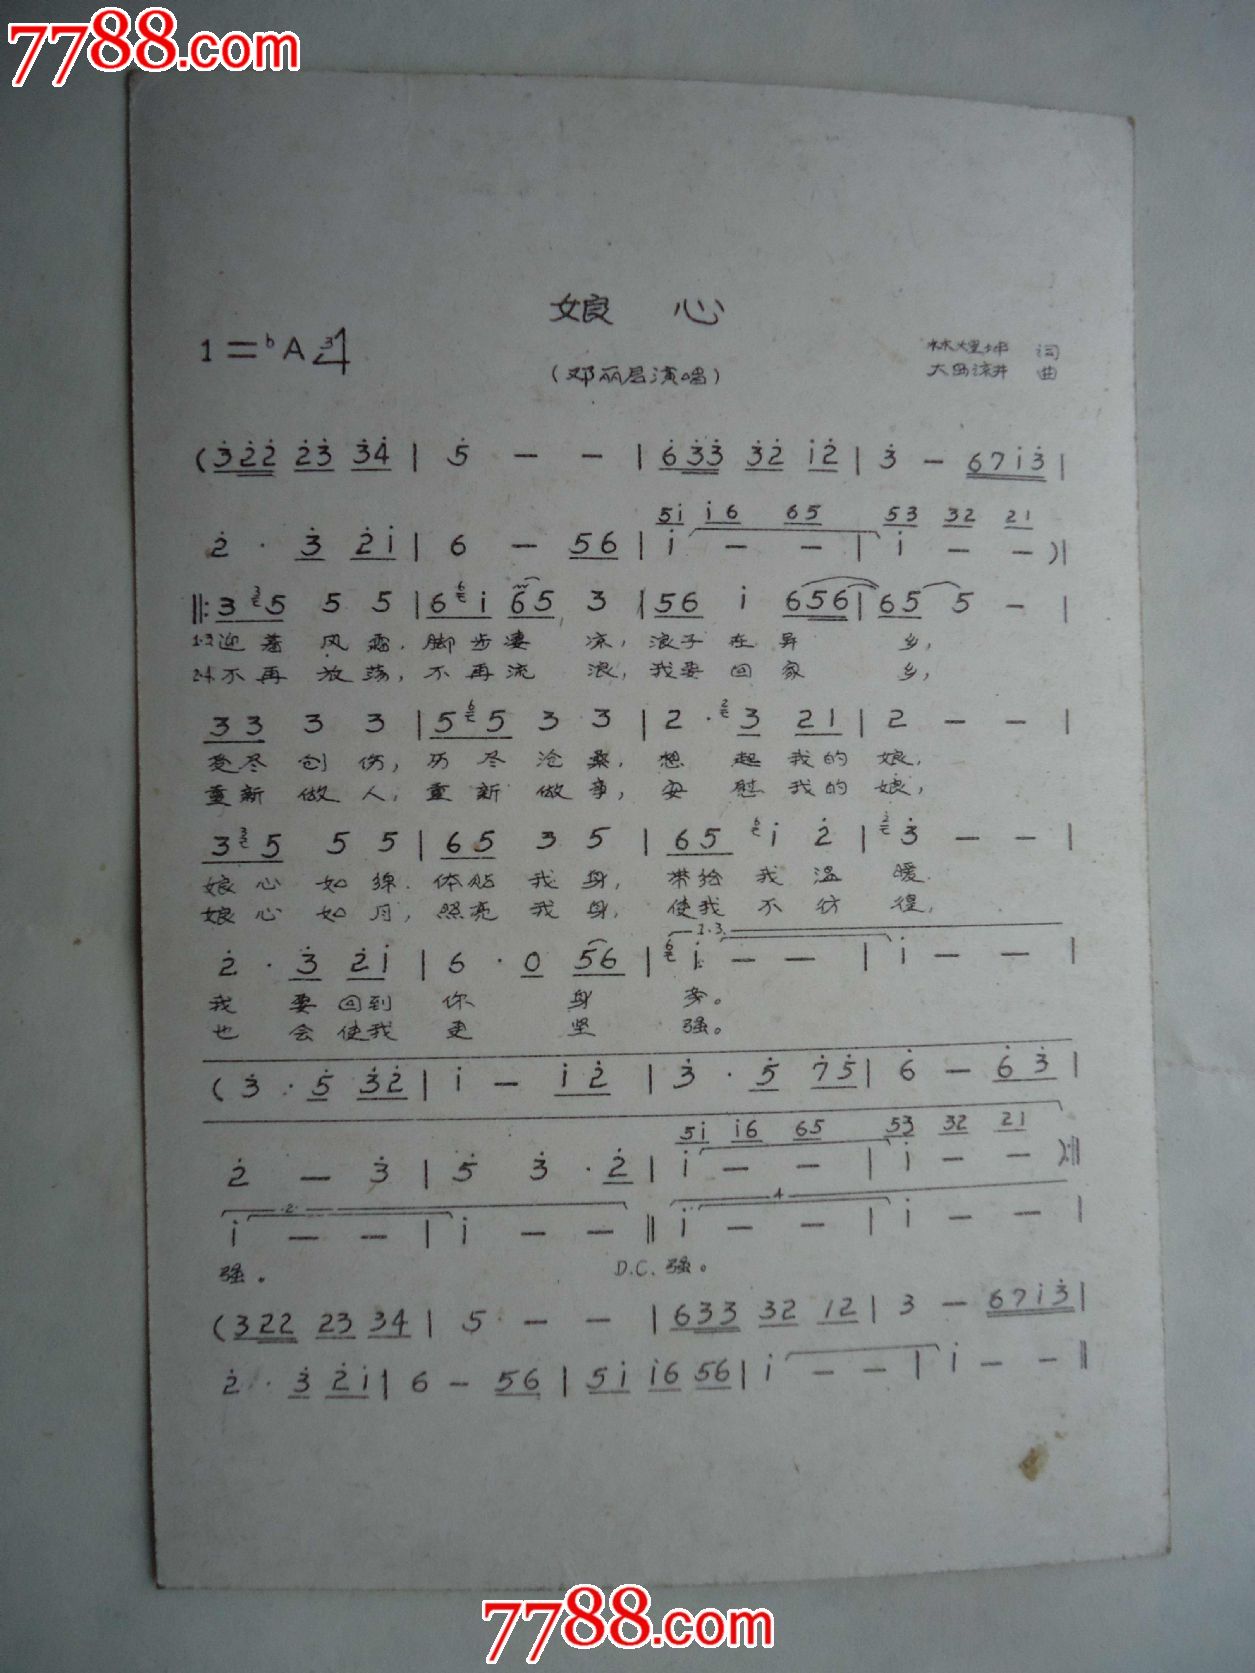 7788.com
娘 心
1=ᵇA 3/4
(邓丽君演唱)
林煌坤 词
大鸟凉井 曲
(3̇2̇2̇ 2̇3̇ 3̇4̇ | 5̇ — — | 6̇3̇3̇ 3̇2̇ i2̇ | 3̇ — 67i3̇ |
5i i6 65 53 32 21
2̇ · 3̇ 2̇i | 6 — 56 | i — — | i — — )|
‖: 3 3 5 5 5 | 6 6 i 65 3 | 56 i 656 | 65 5 — |
1·3迎著 风霜,脚步凄 凉,浪子在异 乡,
2·4不再 放荡,不再流 浪,我要回家 乡,
33 3 3 | 5 6 5 3 3 | 2 · 2 3 21 | 2 — — |
受尽 创伤,历尽沧桑,想 起我的 娘,
重新 做人,重新做事,安 慰我的 娘,
3 3 5 5 5 | 65 3 5 | 65 6 i 2̇ | 2 3̇ — — |
娘心 如绵.体贴 我身,带给 我 温 暖.
娘心 如月,照亮 我身,使我 不 彷 徨,
1·3.
2̇ · 3̇ 2̇i | 6 · 0 56 | 6 i — — | i — — |
我 要回到 你 身 旁。
也 会使我 更 坚 强。
(3̇ · 5̇ 3̇2̇ | i — i2̇ | 3̇ · 5̇ 7̇5̇ | 6̇ — 6̇3̇ |
5i i6 65 53 32 21
2̇ — 3̇ | 5̇ 3̇ · 2̇ | i — — | i — — ):‖
2. 4
i — — | i — — ‖ i — — | i — — |
强。 D.C. 强。
(322 23 34 | 5 — — | 633 32 12 | 3 — 67i3̇ |
2̇ · 3̇ 2̇i | 6 — 56 | 5i i6 56 | i — — | i — — ‖
7788.com